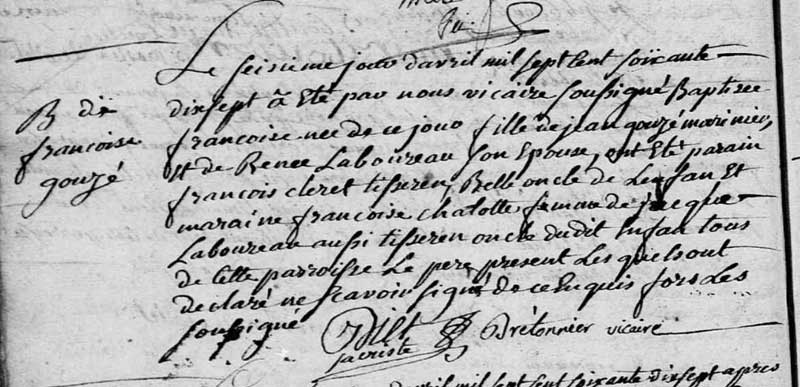 Le seisieme jour davril mil sept Cent soixante
dixsept â Eté par nous vicaire soussigné Baptisee
francoise née de ce jour fille de jean gouzé marinier,
et de Renee Laboureau son Epouse, ont Eté parain
francois cleret tisseren, Belle oncle de Lenfan Et
maraine francoise chalotte femme de jacque
Laboureau aussi tisseren oncle dudit Enfan tous
de Cette parroisse Le pere present Les quels ont
declaré ne scavoir signé de ce Enquis fors Les
soussigné
B de
francoise
gouzé
sacriste
Brétonnier vicaire
avril mil sept cent soixante dixsept apres